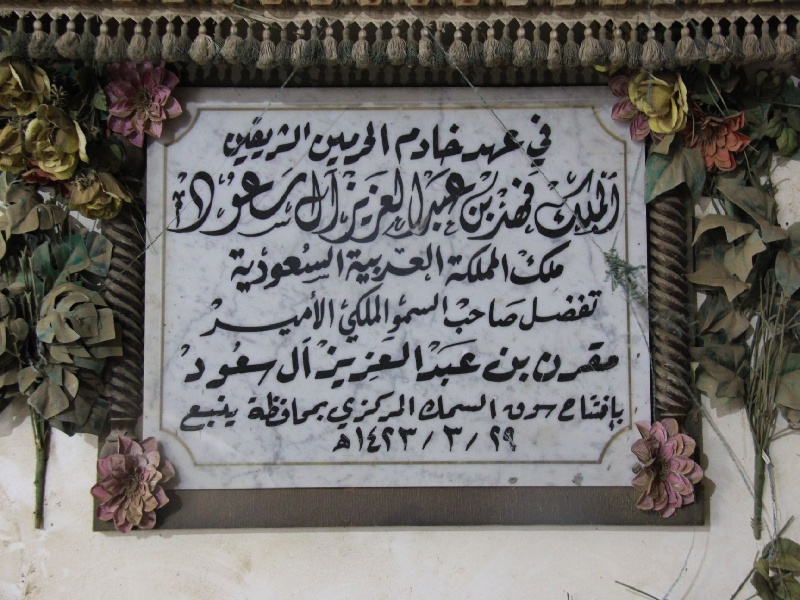 في عهد خادم الحرمين الشريفين
الملك فهد بن عبدالعزيز آل سعود
ملك المملكة العربية السعودية
تفضل صاحب السمو الملكي الأمير
مقرن بن عبدالعزيز آل سعود
بإفتتاح سوق السمك المركزي بمحافظة ينبع
٢٩ / ٣ / ١٤٢٣هـ